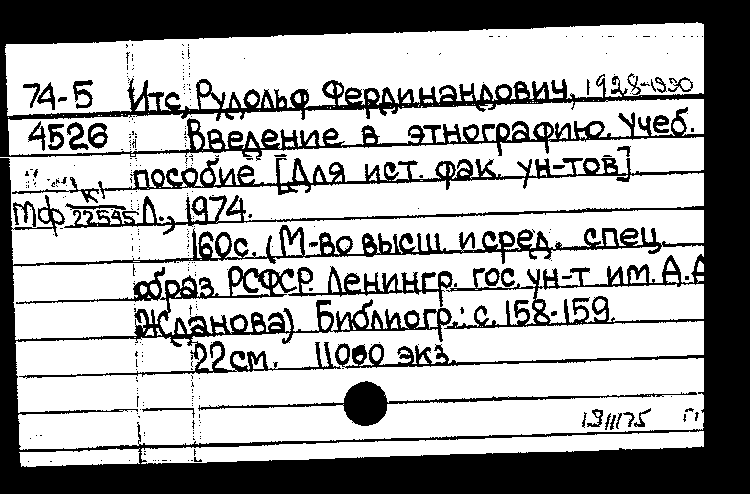 74-5 Итс, Рудольф Фердинандович, 1928-1990
4526 Введение в этнографию. Учеб.
пособие. [Для ист. фак. ун-тов].
Мф К1 22545 Л., 1974.
160с. (М-во высш. и сред. спец.
образ. РСФСР. Ленингр. гос. ун-т им. А.А
Жданова). Библиогр.: с. 158-159.
22см. 11000 экз.